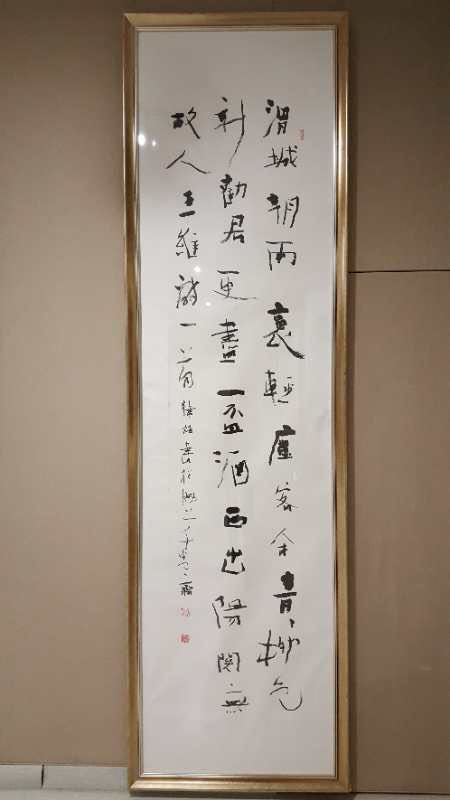 渭城朝雨裛輕塵客舍青〻柳色
新勸君更盡一盃酒西出陽関無
故人王維詩一首